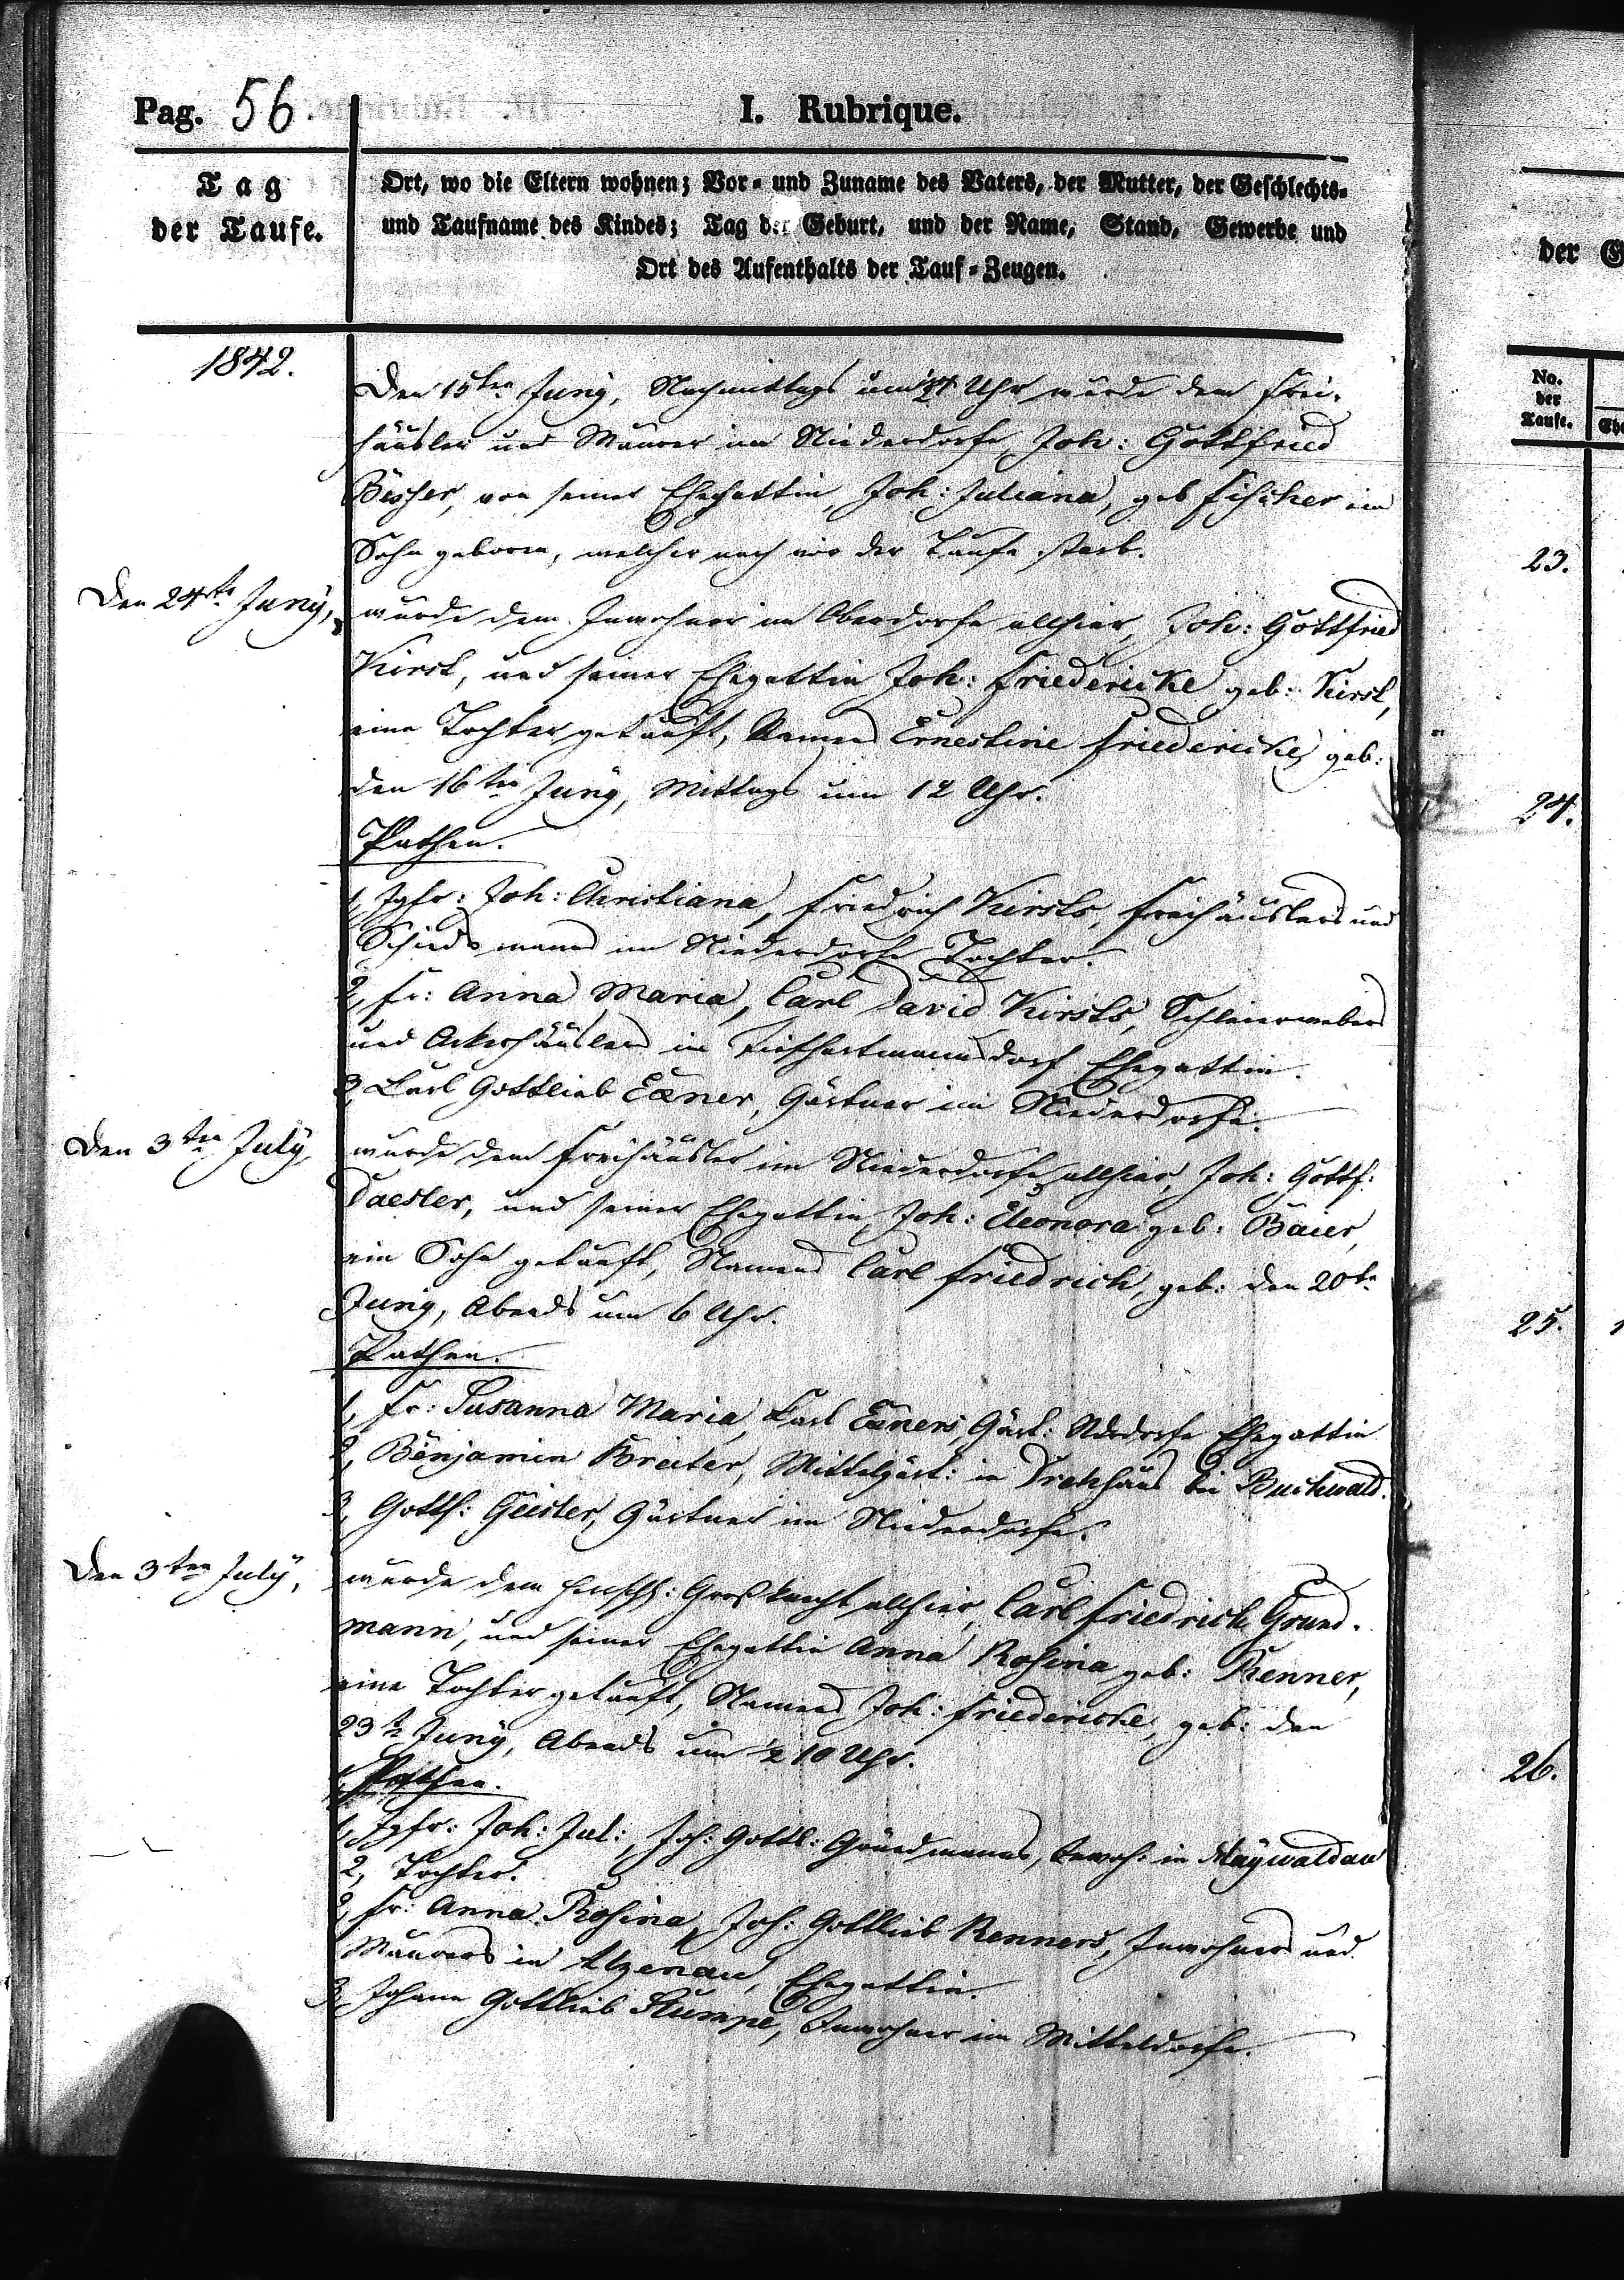 Pag. 56.
I. Rubrique.
Tag
der Taufe.
Ort, wo die Eltern wohnen; Vor- und Zuname des Vaters, der Mutter, der Geschlechts-
und Taufname des Kindes; Tag der Geburt, und der Name, Stand, Gewerbe und
Ort des Aufenthalts der Tauf-Zeugen.
1842.
Den 15ten Juny, Nachmittags um Uhr wurde dem Frei-
häusler und Maurer im Niederdorfe, Joh: Gottfried
von seiner Ehegattin, Joh: Juliana, geb Fischer ein
Sohn geboren, welcher noch vor der Taufe starb.
Den 24ten Juny,
wurde dem Inwohner im Oberdorfe allhier, Joh: Gottfried
Kirst, und seiner Ehegattin Joh: Friedericke geb: Kirst,
eine Tochter getauft, Namens Ernestine Friedericke, geb:
den 16ten Juny, Mittags um 12 Uhr.
Pathen.
1, Jgfr: Joh: Christiana, Friedrich Kirsts, Freihäuslers und
Schiedsmanns im Niederdorfe Tochter.
2, Fr: Anna Maria, Carl David Kirsts, Schleierwebers
und Ackerhäuslers in Tiefhartmannsdorf Ehegattin.
3, Karl Gottlieb Exner, Gärtner im Niederdorfe.
Den 3ten July,
wurde dem Freihäusler im Niederdorfe allhier, Joh: Gottf:
Daesler, und seiner Ehegattin, Joh: Eleonora geb: Baier,
ein Sohn getauft, Namens Carl Friedrich, geb: den 20ten
Juny, Abends um 6 Uhr.
Pathen.
1, Fr: Susanna Maria, Karl Exners, Gärt: Ndrdorfe Ehegattin
2, Benjamin Breiter, Mittelgärt: in bei Buchwald.
3, Gottf: Geisler, Gärtner im Niederdorfe.
Den 3ten July,
wurde dem Großknecht allhier, Carl Friedrich Grund-
mann, und seiner Ehegattin Anna Rosina geb: Renner,
eine Tochter getauft, Namens Joh: Friedericke, geb: den
23ten Juny, Abends um ½ 10 Uhr.
Pathen.
1, Jgfr: Joh: Jul:, Joh: Gottl: Grundmanns, Inwoh: in Maywaldau
2, Tochter.
2, Fr: Anna Rosina, Joh: Gottlieb Renners, Inwohners und
Maurers in Alzenau, Ehegattin.
3, Johann Gottlieb Stumpe, Inwohner im Mitteldorfe.
No.
der
Taufe.
23.
24.
25.
26.